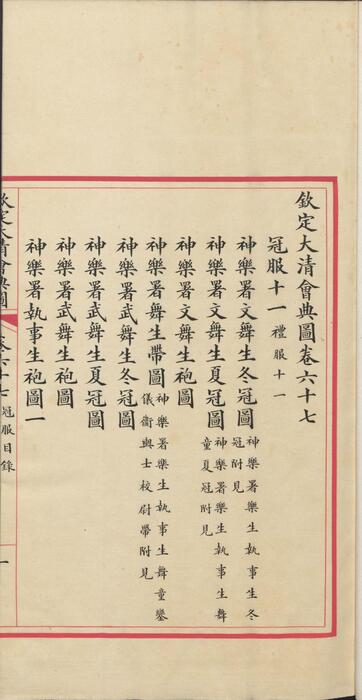 欽定大清會典圖卷六十七
冠服十一 禮服十一
神樂署文舞生冬冠圖 神樂署樂生執事生冬冠附見
神樂署文舞生夏冠圖 神樂署樂生執事生舞童夏冠附見
神樂署文舞生袍圖
神樂署舞生帶圖 神樂署樂生執事生舞童鑾儀衛輿士校尉帶附見
神樂署武舞生冬冠圖
神樂署武舞生夏冠圖
神樂署武舞生袍圖
神樂署執事生袍圖一
欽定大清會典圖 卷六十七 冠服目錄 一